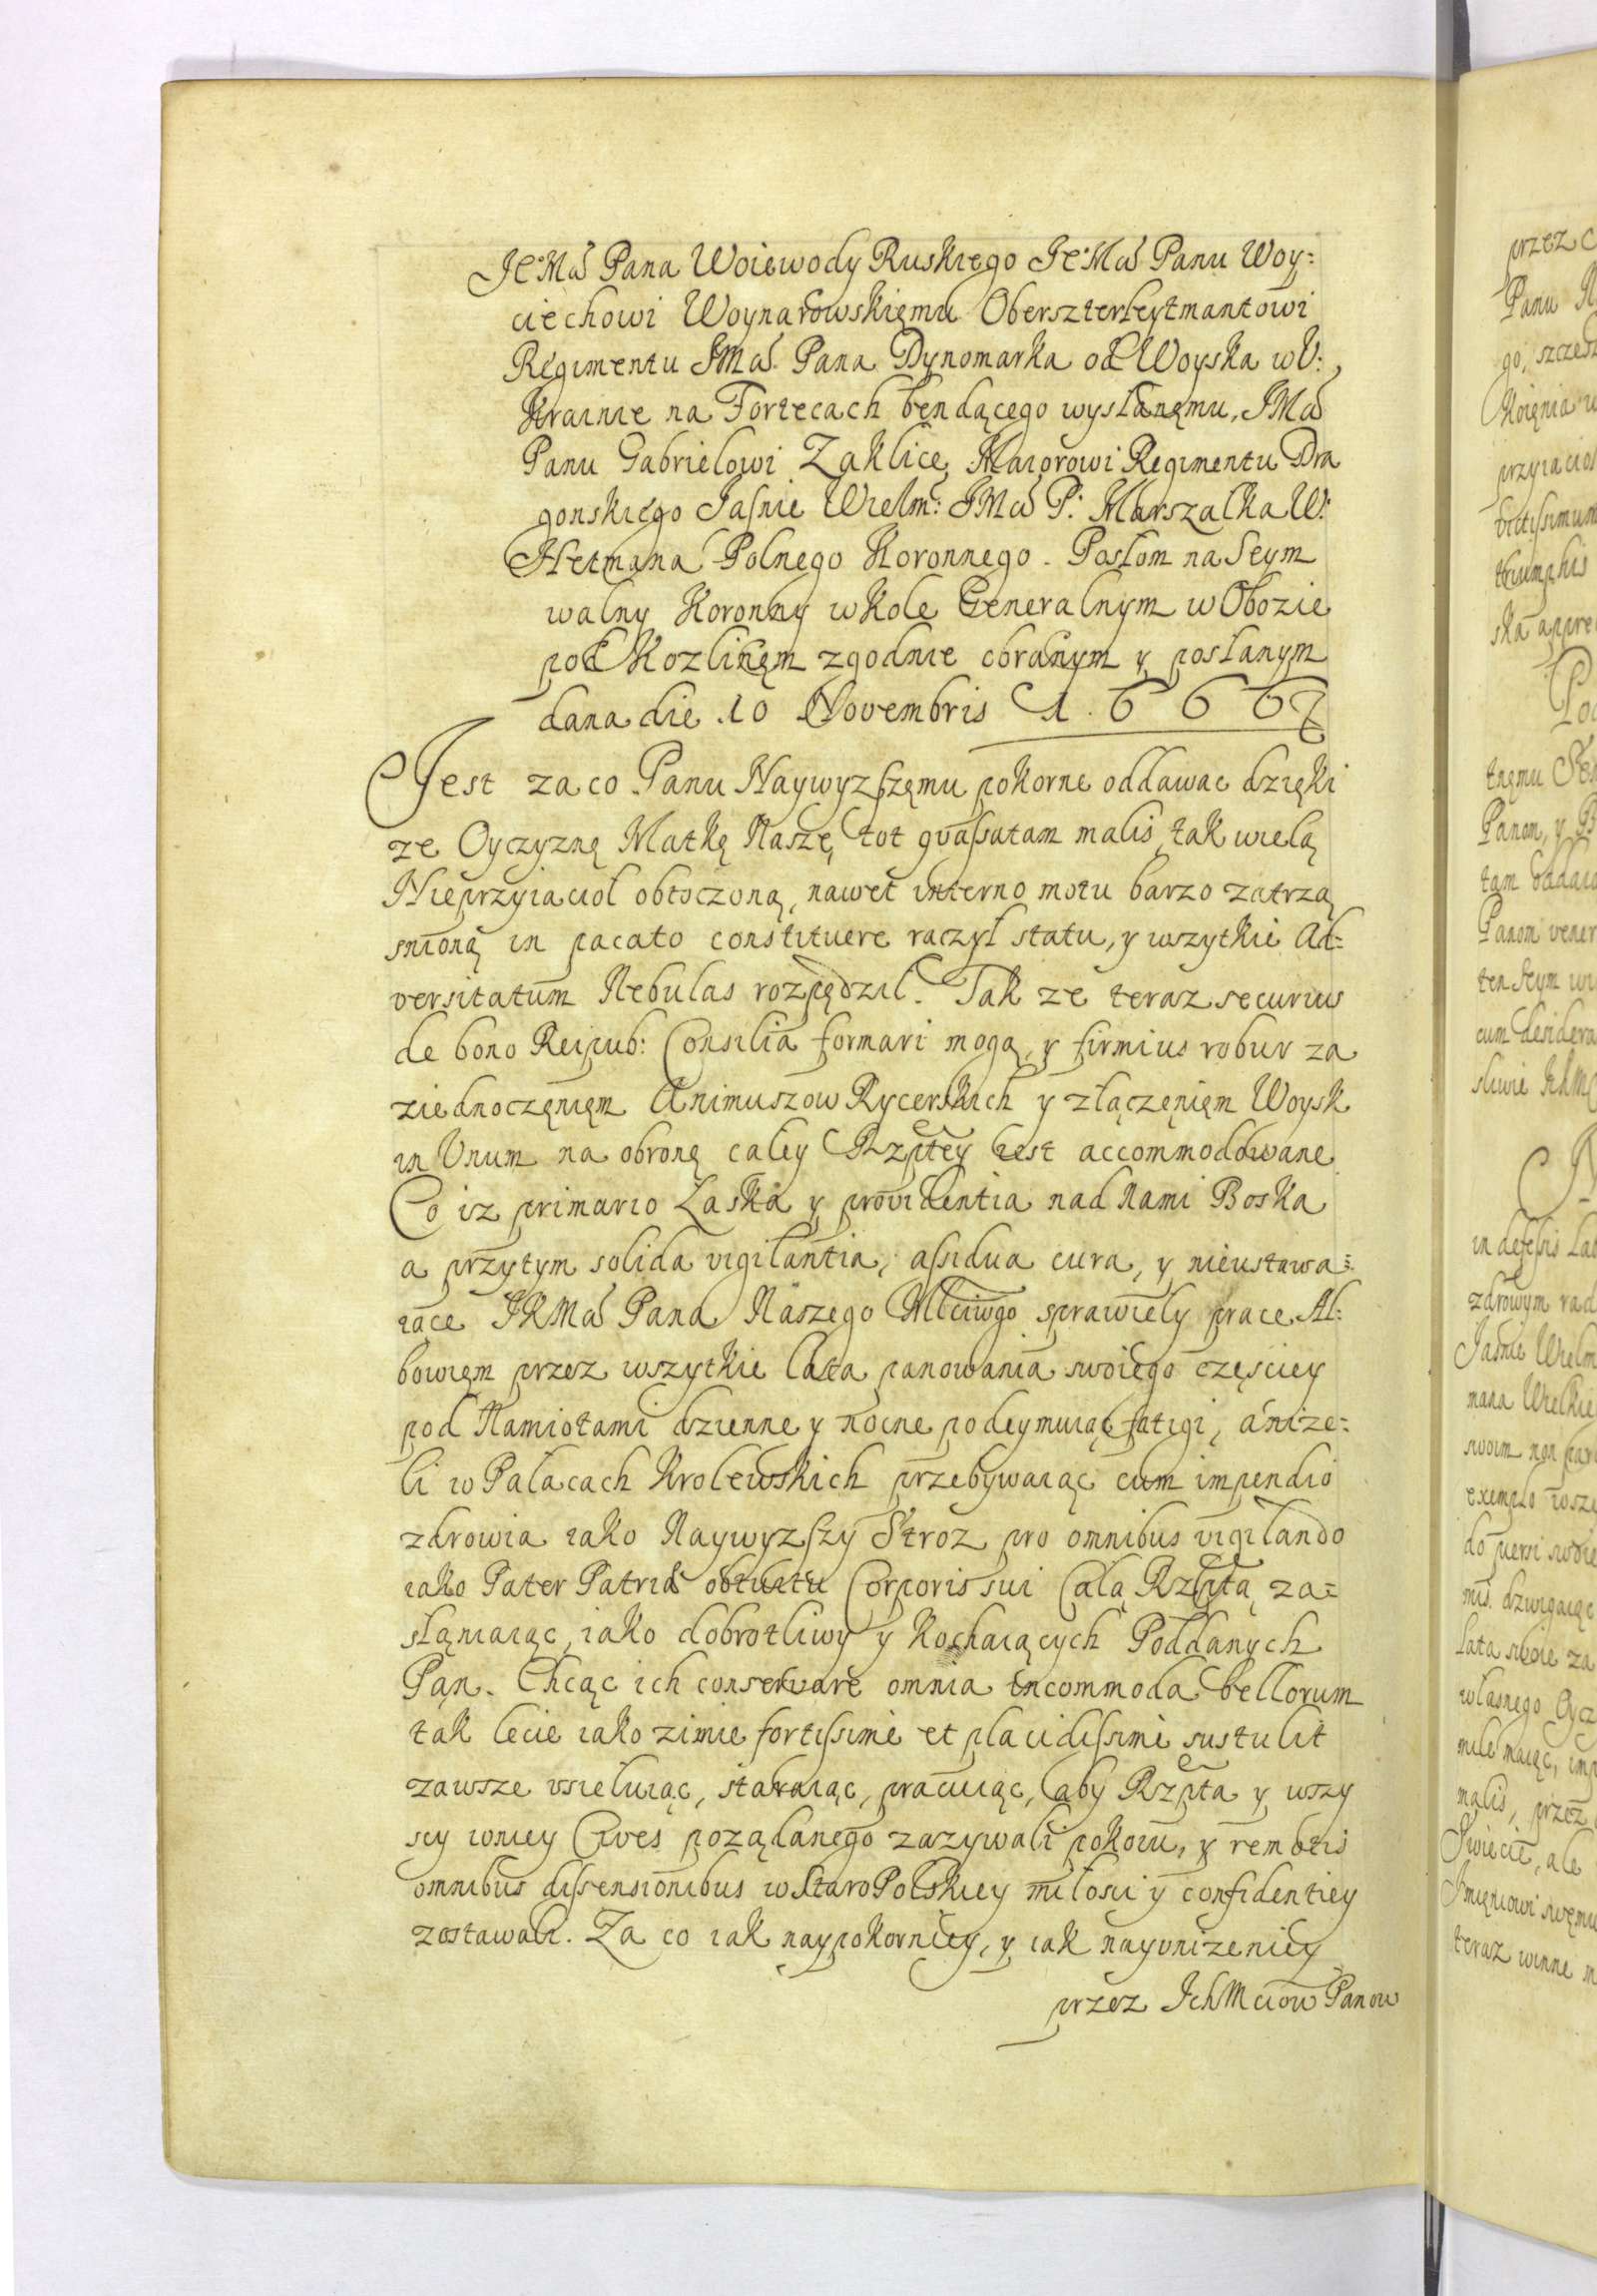 JE°Mći Pana Woiewody Ruskiego JE°Mći Panu Woy:
ciechowi Woynarowskięmu Oberszterleytmantowi
Regimentu JMći Pana Dynomarka od Woyska w V:
kraine na Fortecach bendącego wysłanęmu, JMći
Panu Gabrielowi Zaklice, Maiorowi Regimentu Dra
gonskiego Jaśnie Wielm: JMći P: Marszalka W:
Hetmana Polnego Koronnego. Posłom na Seym
walny Koronny w Kole Generalnym w Obozie
pod Kozlinęm zgodnie obranym y posłanym
dana die .10 Novembris 1.6667
Jest za co Panu Naywyzszęmu pokorne oddawac dzięki
ze Oyczyzną Matkę Naszę, tot quassatam malis, tak wielą
Nieprzyiacioł obtoczoną, nawet interno motu barzo zatrzą
snioną in pacato constituere raczył statu, y wszytkie Ad=
versitatum Nebulas rozpędził. Tak ze teraz securius
de bono Reipub: Consilia formari mogą, y firmius robur za
ziednoczęnięm Animuszow Rycerskich y złączęnięm Woysk
in Vnum na obronę całey Rzptey iest accommodowane
Co iz primario Łaska y providentia nad Nami Boska
a przytym solida vigilantia, assidua cura, y nieustawa=
iące JKMći Pana Naszego Młciwgo sprawieły prace Al:
bowięm przez wszytkie lata panowania swoiego częściey
pod Namiotami dzienne y nocne podeymuiąc fatigi, anize=
li w Pałacach Krolewskich przebywaiąc cum impendio
zdrowia iako Naywyzszy Stroz pro omnibus vigilando
iako Pater Patriæ obtuitu Corporis sui Całą Rzptą za=
słąniaiąc, iako dobrotliwy y kochaiących Poddanych
Pąn. Chcąc ich conservare omnia incommoda bellorum
tak lecie iako zimie fortissime et placidissime sustulit
zawsze vsieluiąc, staraiąc, pracuiąc, aby Rzpta y wszy
scy w niey Cives poządanego zazywali pokoiu, y remotis
omnibus dissensionibus w Staro Polskiey miłości y confidentiey
zostawali. Za co iak naypokorniey, y iak nayunizeniey
przez IchMciow Panow